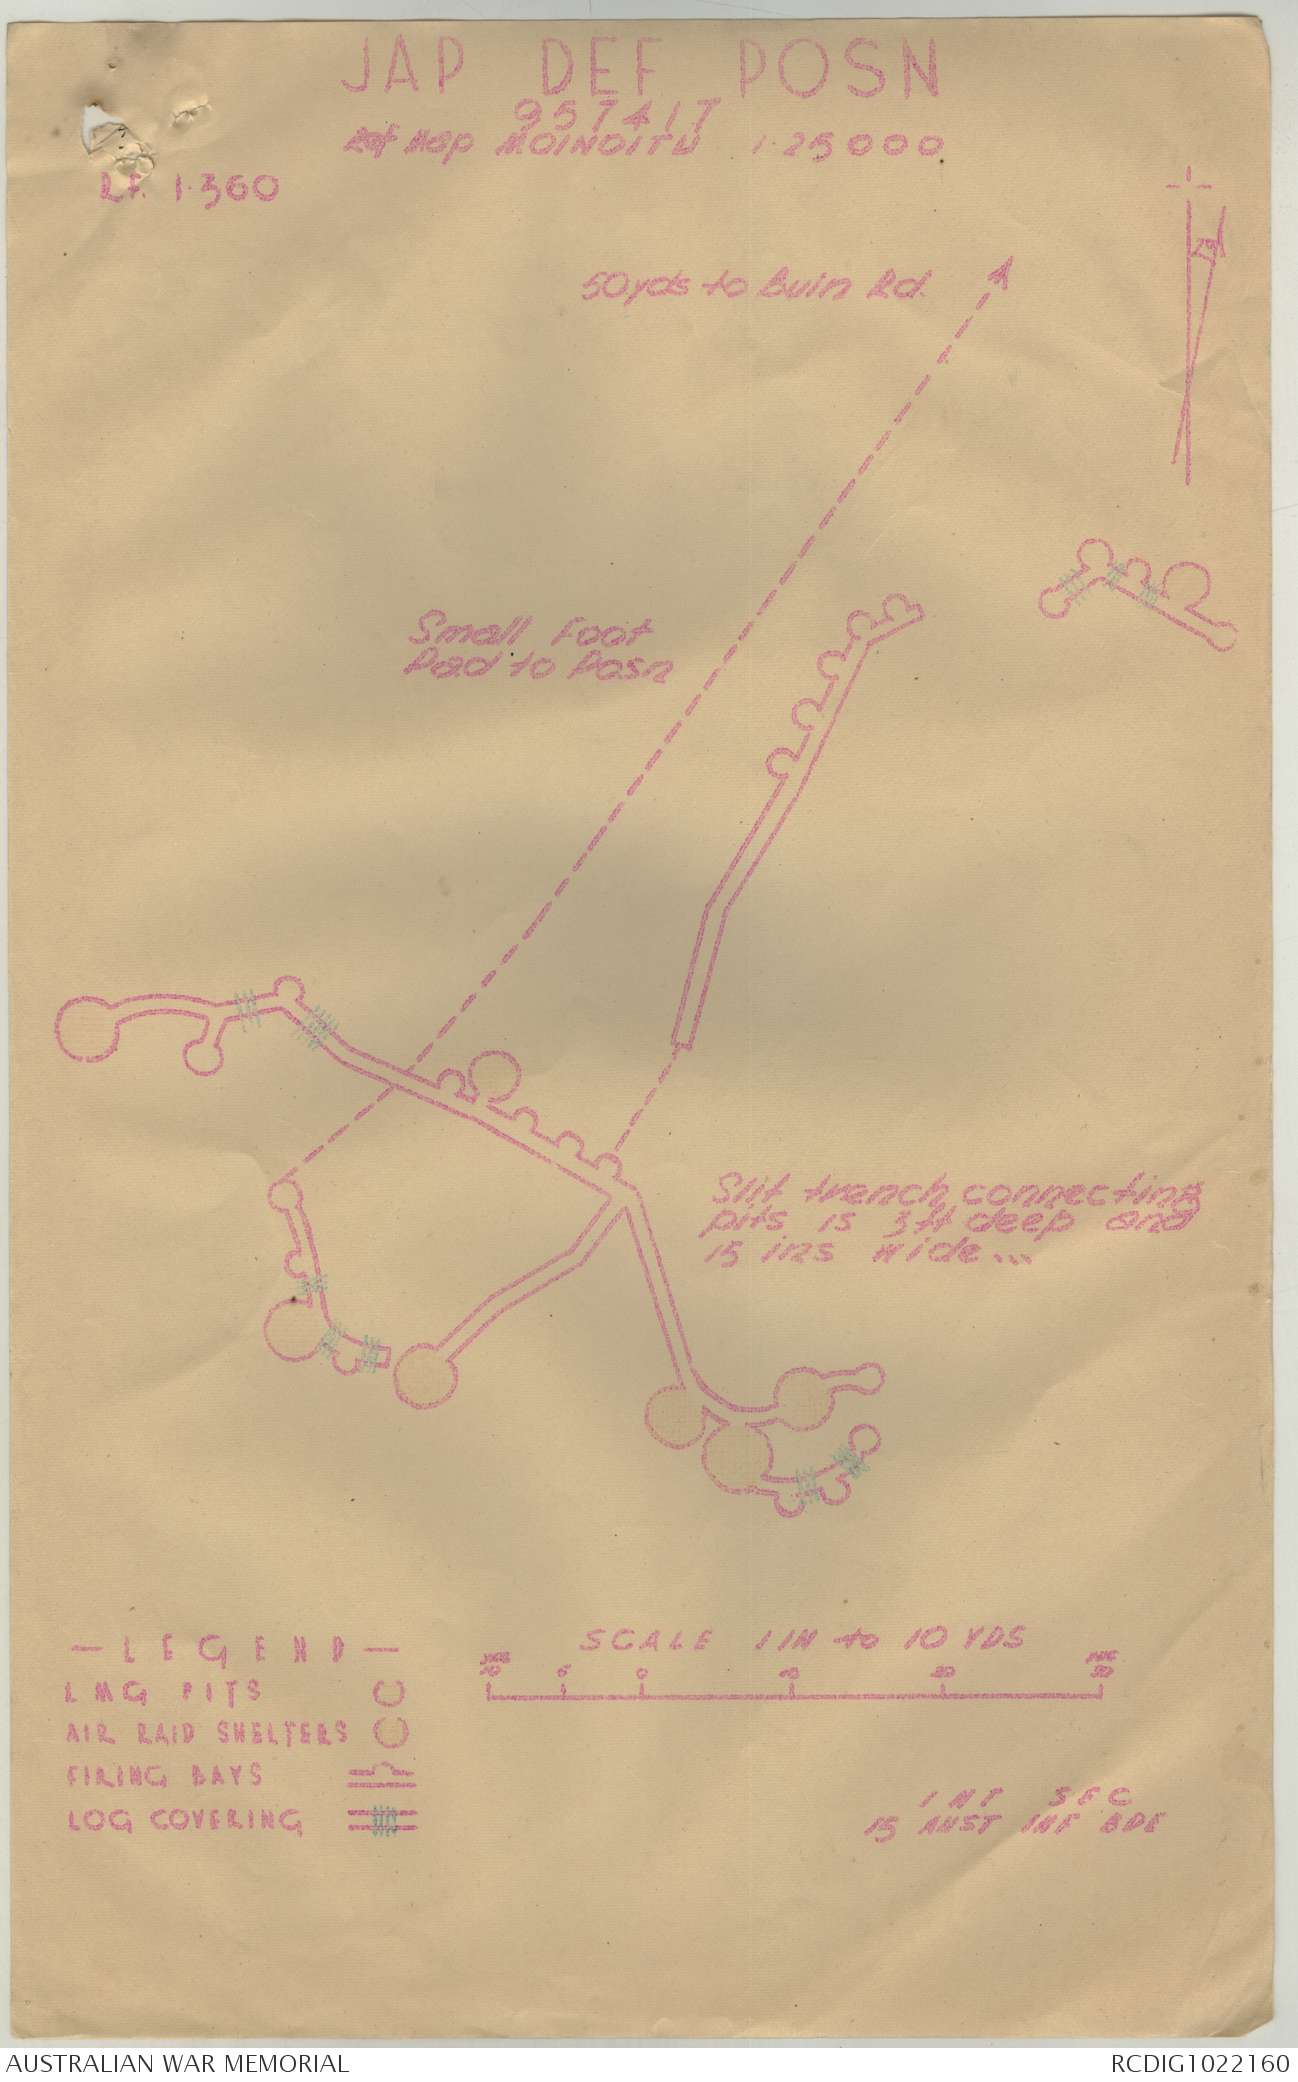 JAP DEF POSN
957417
Ref Map MOINOITU 1·25000
R.F. 1·360
50yds to Buin Rd.
Small Foot
Pad to Posn
Slit trench connecting
pits is 3ft deep and
15 ins wide...
— LEGEND —
LMG PITS
AIR RAID SHELTERS
FIRING BAYS
LOG COVERING
SCALE 1 IN to 10 YDS
YDS
10 5 0 10 20
INT SEC
15 AUST INF BDE
AUSTRALIAN WAR MEMORIAL
RCDIG1022160